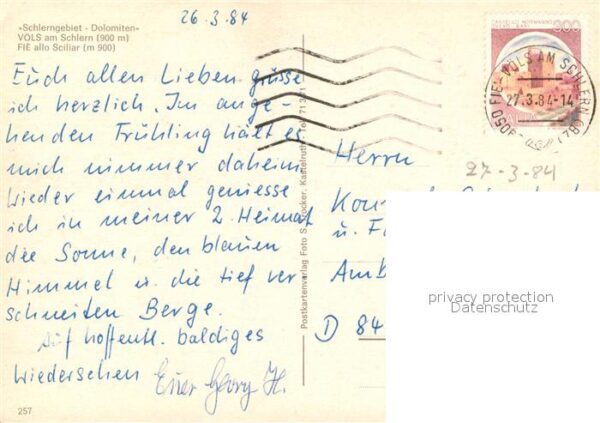 26.3.84
«Schlerngebiet - Dolomiten»
VÖLS am Schlern (900 m)
FIÈ allo Sciliar (m 900)
Euch allen Lieben grüsse
ich herzlich. Im ange-
henden Frühling hält es
mich nimmer daheim
Wieder einmal geniesse
ich in meiner 2. Heimat
die Sonne, den blauen
Himmel u. die tief ver
schneiten Berge.
Auf hoffentl. baldiges
Wiedersehen Euer Georg H.
257
Postkartenverlag Foto S. Kastelruth Tel.
300
FIE - VÖLS AM SCHLERN (BZ)
27.3.84-14
27-3-84
Herrn
u.
D 84
privacy protection
Datenschutz